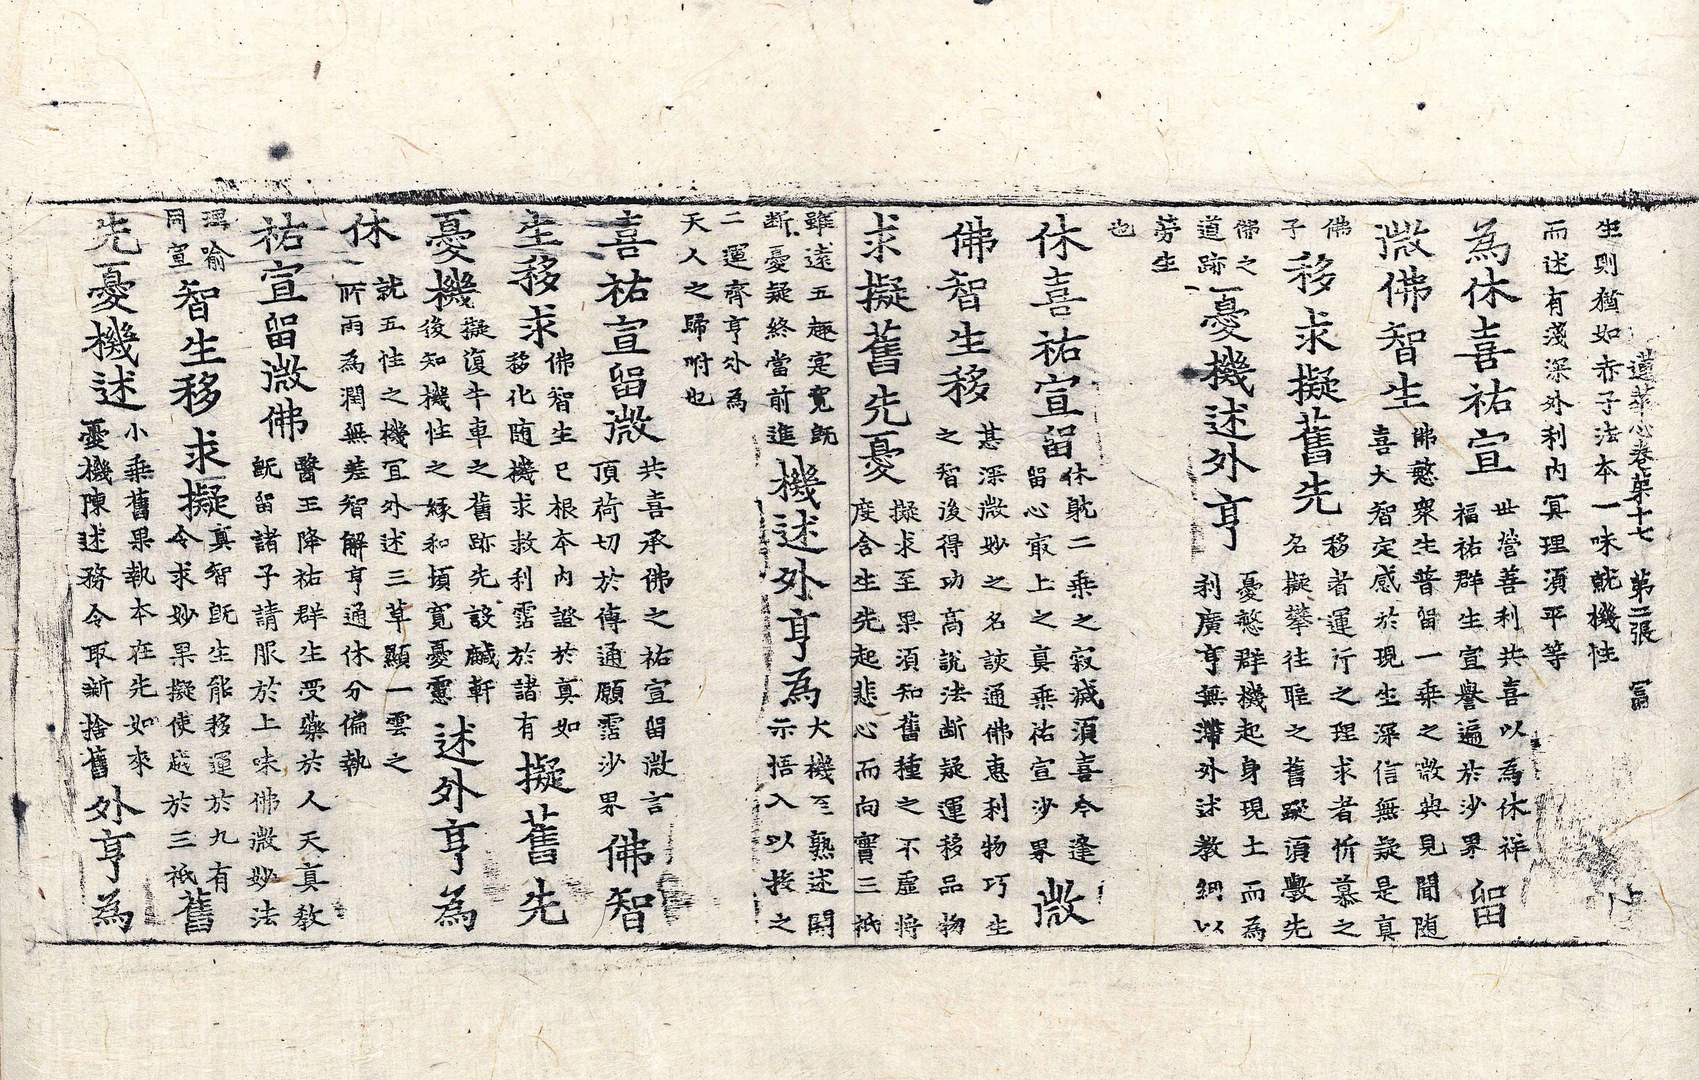 蓮華心卷第十七 第二張 富
生則猶如赤子法本一味就機性
而述有淺深外利內冥理須平等
為休喜祐宣
世營善利共喜以為休祥
福祐群生宣譽遍於沙界
留
微佛智生
佛慜衆生普留一乘之微典見聞随
喜大智定感於現生深信無疑是真
佛
子
移求擬舊先
移者運行之理求者忻慕之
名擬攀往聖之舊蹤須斅先
佛之
道跡
憂機述外亨
憂慜群機起身現土而為
利廣亨無滯外述教網以
劳生
也
休喜祐宣留
休躭二乘之寂滅須喜今逢
留心㝡上之真乘祐宣沙界
微
佛智生移
甚深微妙之名談通佛惠利物巧生
之智後得功高說法断疑運移品物
求擬舊先憂
擬求至果須知舊種之不虛將
度含生先起悲心而向實三祇
雖遠五趣寔寬旣
断憂疑終當前進
機述外亨為
大機熟述開
示悟入以接之
二運齊亨外為
天人之歸咐也
喜祐宣留微
共喜承佛之祐宣留微言
頂荷切於傳通願霑沙界
佛智
生移求
佛智生已根本內證於真如
移化随機求救利霑於諸有
擬舊先
憂機
擬復牛車之舊跡先設鹹軒
後知機性之緣和頃寬憂慮
述外亨為
休
就五性之機冝外述三草顯一雲之
所雨為潤無差智解亨通休分偏執
祐宣留微佛
醫王降祐群生受藥於人天真教
旣留諸子請服於上味佛微妙法
理喻
同宣
智生移求擬
真智旣生能移運於九有
令求妙果擬使越於三祇
舊
先憂機述
小乘舊果執本在先如來
憂機陳述務令取新捨舊
外亨為